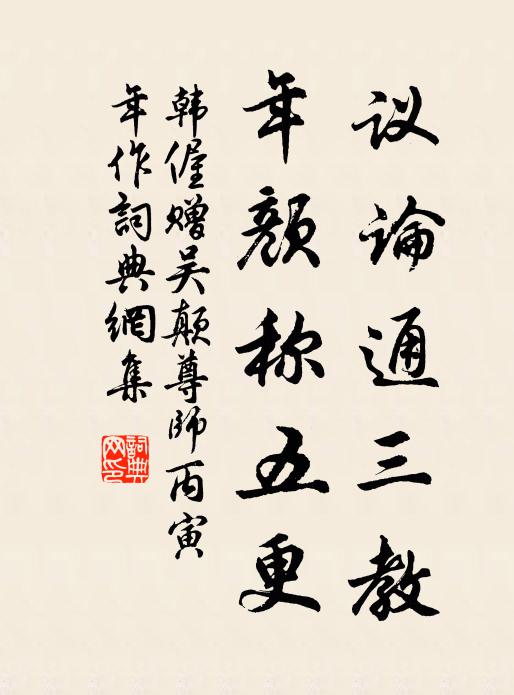 议论通三教
年颜称五更
韩偓赠吴颠尊师丙寅
年作詞典網集
詞典网印